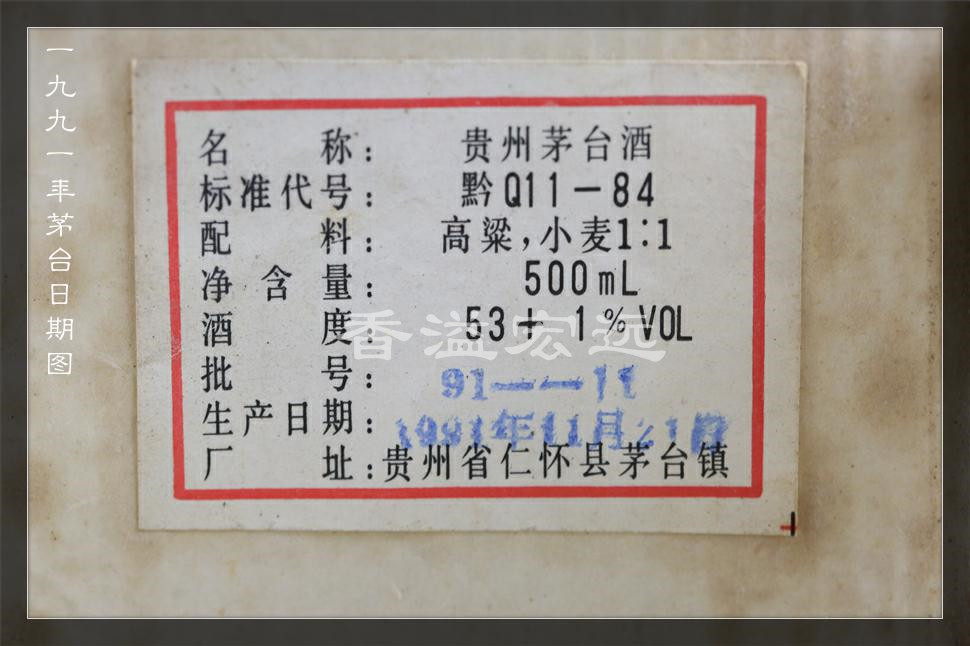 一九九一年茅台日期图
名称：贵州茅台酒
标准代号：黔Q11—84
配料：高粱，小麦1:1
净含量：500mL
酒度：53+ 1%VOL
香溢宏远
批号：91——11
生产日期：1991年11月21日
厂址：贵州省仁怀县茅台镇